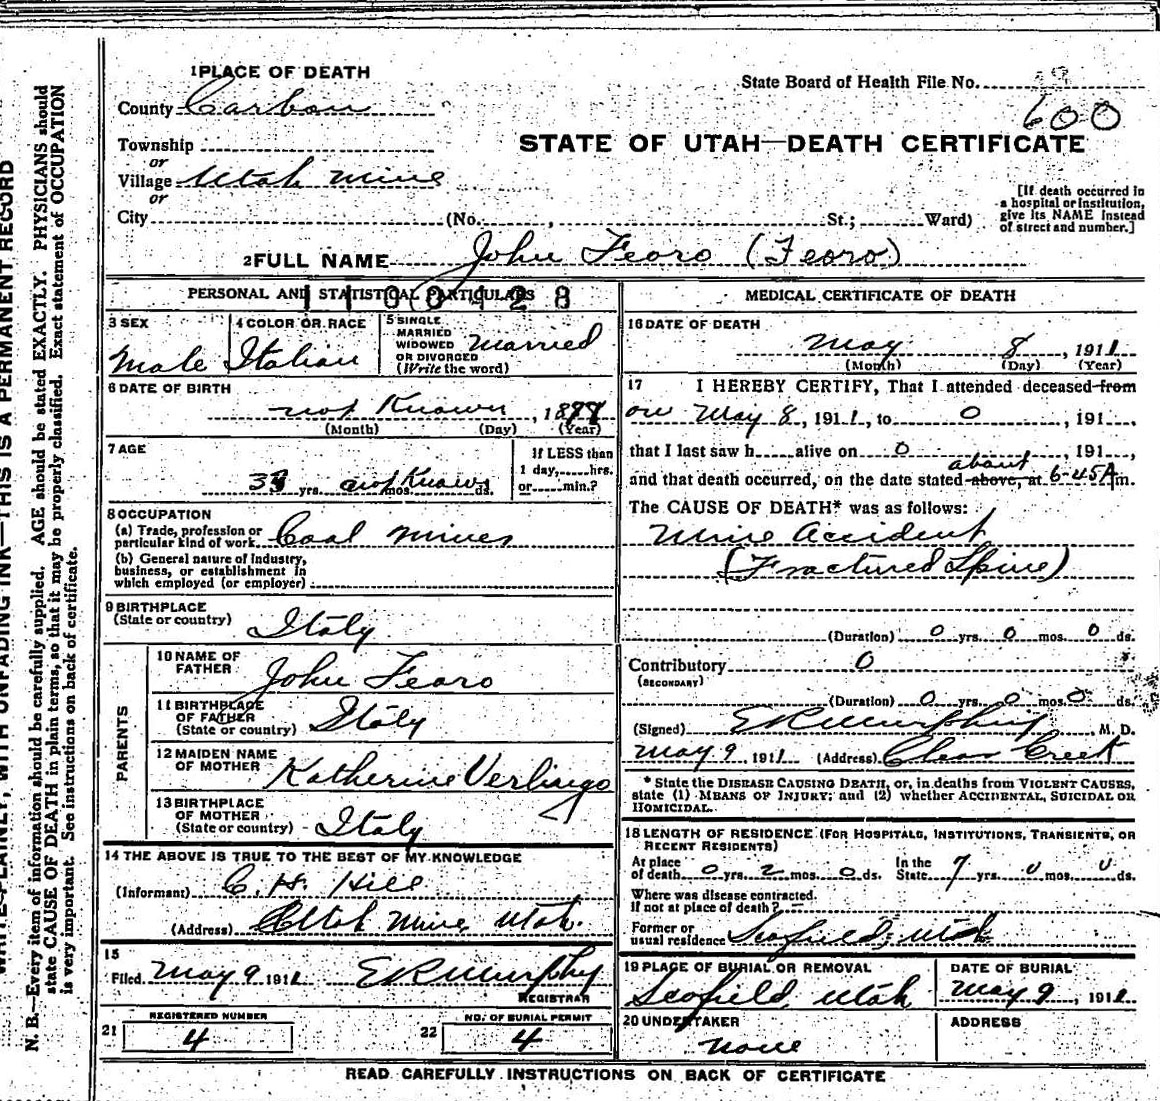 1 PLACE OF DEATH
State Board of Health File No.
County Carbon
600
STATE OF UTAH—DEATH CERTIFICATE
Township
or
Village Utah Mine
or
City (No. , St.; Ward)
[If death occurred in
a hospital or institution,
give its NAME instead
of street and number.]
2 FULL NAME John Fearo (Fearo)
PERSONAL AND STATISTICAL PARTICULARS
3 SEX
Male
4 COLOR OR RACE
Italian
5 SINGLE
MARRIED
WIDOWED
OR DIVORCED
(Write the word)
Married
6 DATE OF BIRTH
not Known , 18
(Month) (Day) (Year)
7 AGE
yrs. not Known mos. ds.
If LESS than
1 day, hrs.
or min.?
8 OCCUPATION
(a) Trade, profession or
particular kind of work Coal Miner
(b) General nature of industry,
business, or establishment in
which employed (or employer)
9 BIRTHPLACE
(State or country)
Italy
PARENTS
10 NAME OF
FATHER
John Fearo
11 BIRTHPLACE
OF FATHER
(State or country)
Italy
12 MAIDEN NAME
OF MOTHER
Katherine
13 BIRTHPLACE
OF MOTHER
(State or country)
Italy
14 THE ABOVE IS TRUE TO THE BEST OF MY KNOWLEDGE
(Informant) C. H. Hill
(Address) Utah Mine, Utah.
15
Filed May 9 1911 E R Murphy
REGISTRAR
21
REGISTERED NUMBER
4
22
NO. OF BURIAL PERMIT
4
MEDICAL CERTIFICATE OF DEATH
16 DATE OF DEATH
May 8 , 1911
(Month) (Day) (Year)
17 I HEREBY CERTIFY, That I attended deceased from
on May 8, 1911, to 0 , 191 ,
that I last saw h alive on 0 , 191 ,
about
and that death occurred, on the date stated above, at 6-45 A m.
The CAUSE OF DEATH* was as follows:
Mine Accident
(Fractured Spine)
(Duration) 0 yrs. 0 mos. 0 ds.
Contributory 0
(SECONDARY)
(Duration) 0 yrs. 0 mos. 0 ds.
(Signed) E R Murphy , M. D.
May 9 1911 (Address) Clear Creek
* State the DISEASE CAUSING DEATH, or, in deaths from VIOLENT CAUSES,
state (1) MEANS OF INJURY; and (2) whether ACCIDENTAL, SUICIDAL OR
HOMICIDAL.
18 LENGTH OF RESIDENCE (FOR HOSPITALS, INSTITUTIONS, TRANSIENTS, OR
RECENT RESIDENTS)
At place
of death 0 yrs. 2 mos. 0 ds.
In the
State 7 yrs. 0 mos. 0 ds.
Where was disease contracted.
If not at place of death?
Former or
usual residence Scofield, Utah
19 PLACE OF BURIAL OR REMOVAL
Scofield, Utah
DATE OF BURIAL
May 9 , 1911
20 UNDERTAKER
None
ADDRESS
READ CAREFULLY INSTRUCTIONS ON BACK OF CERTIFICATE
WRITE PLAINLY, WITH UNFADING INK—THIS IS A PERMANENT RECORD
N. B.—Every item of information should be carefully supplied. AGE should be stated EXACTLY. PHYSICIANS should
state CAUSE OF DEATH in plain terms, so that it may be properly classified. Exact statement of OCCUPATION
is very important. See instructions on back of certificate.